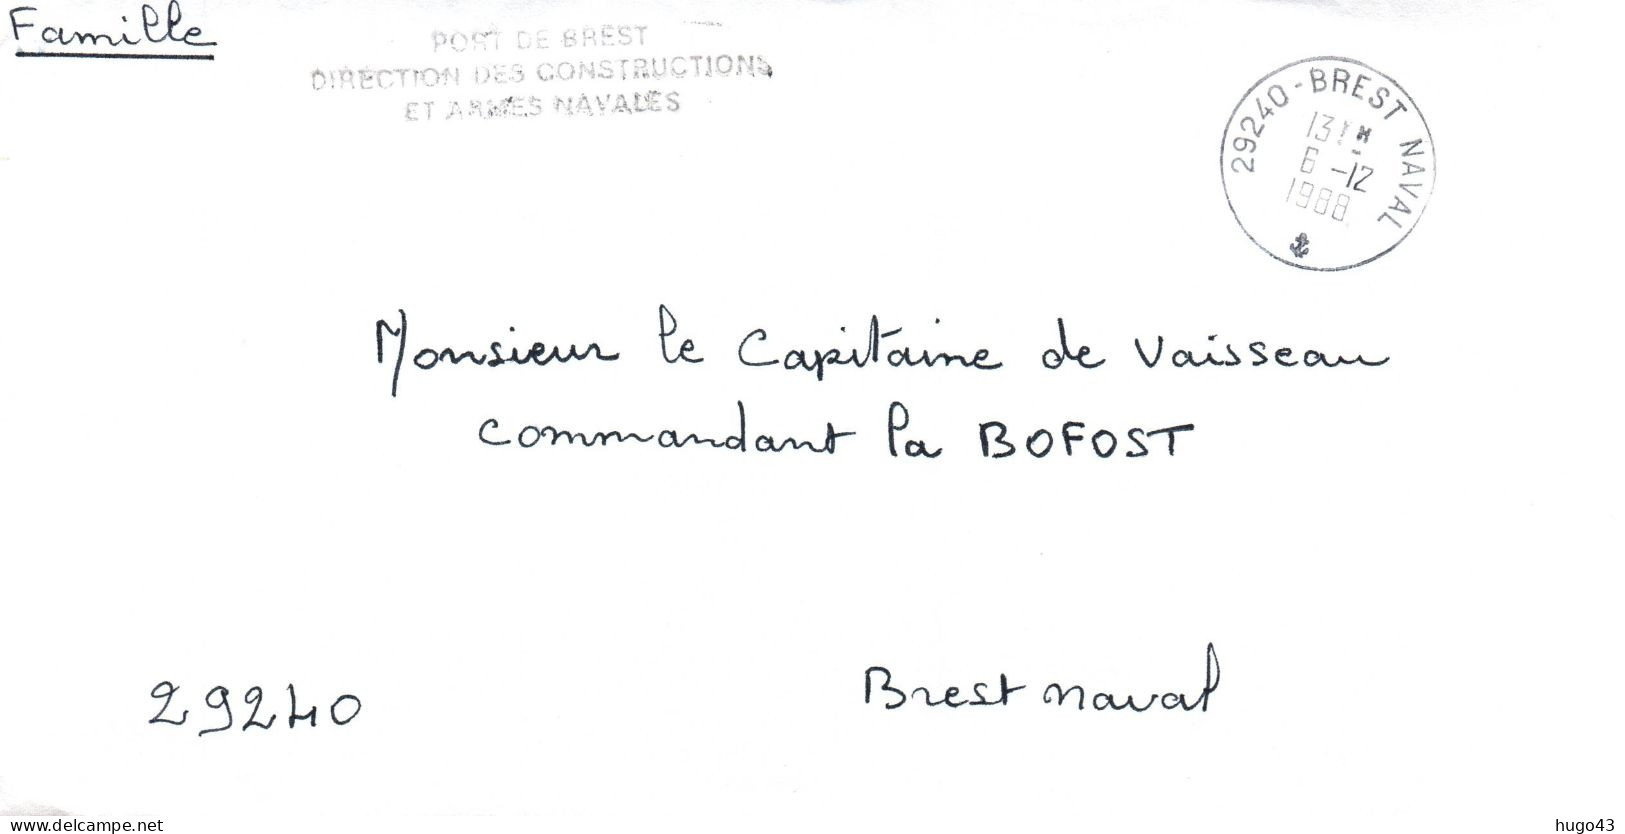 Famille
PORT DE BREST
DIRECTION DES CONSTRUCTIONS
ET ARMES NAVALES
29240 - BREST NAVAL
13H
6 -12
1988
Monsieur le Capitaine de Vaisseau
commandant la BOFOST
29240 Brest naval
www.delcampe.net
hugo43